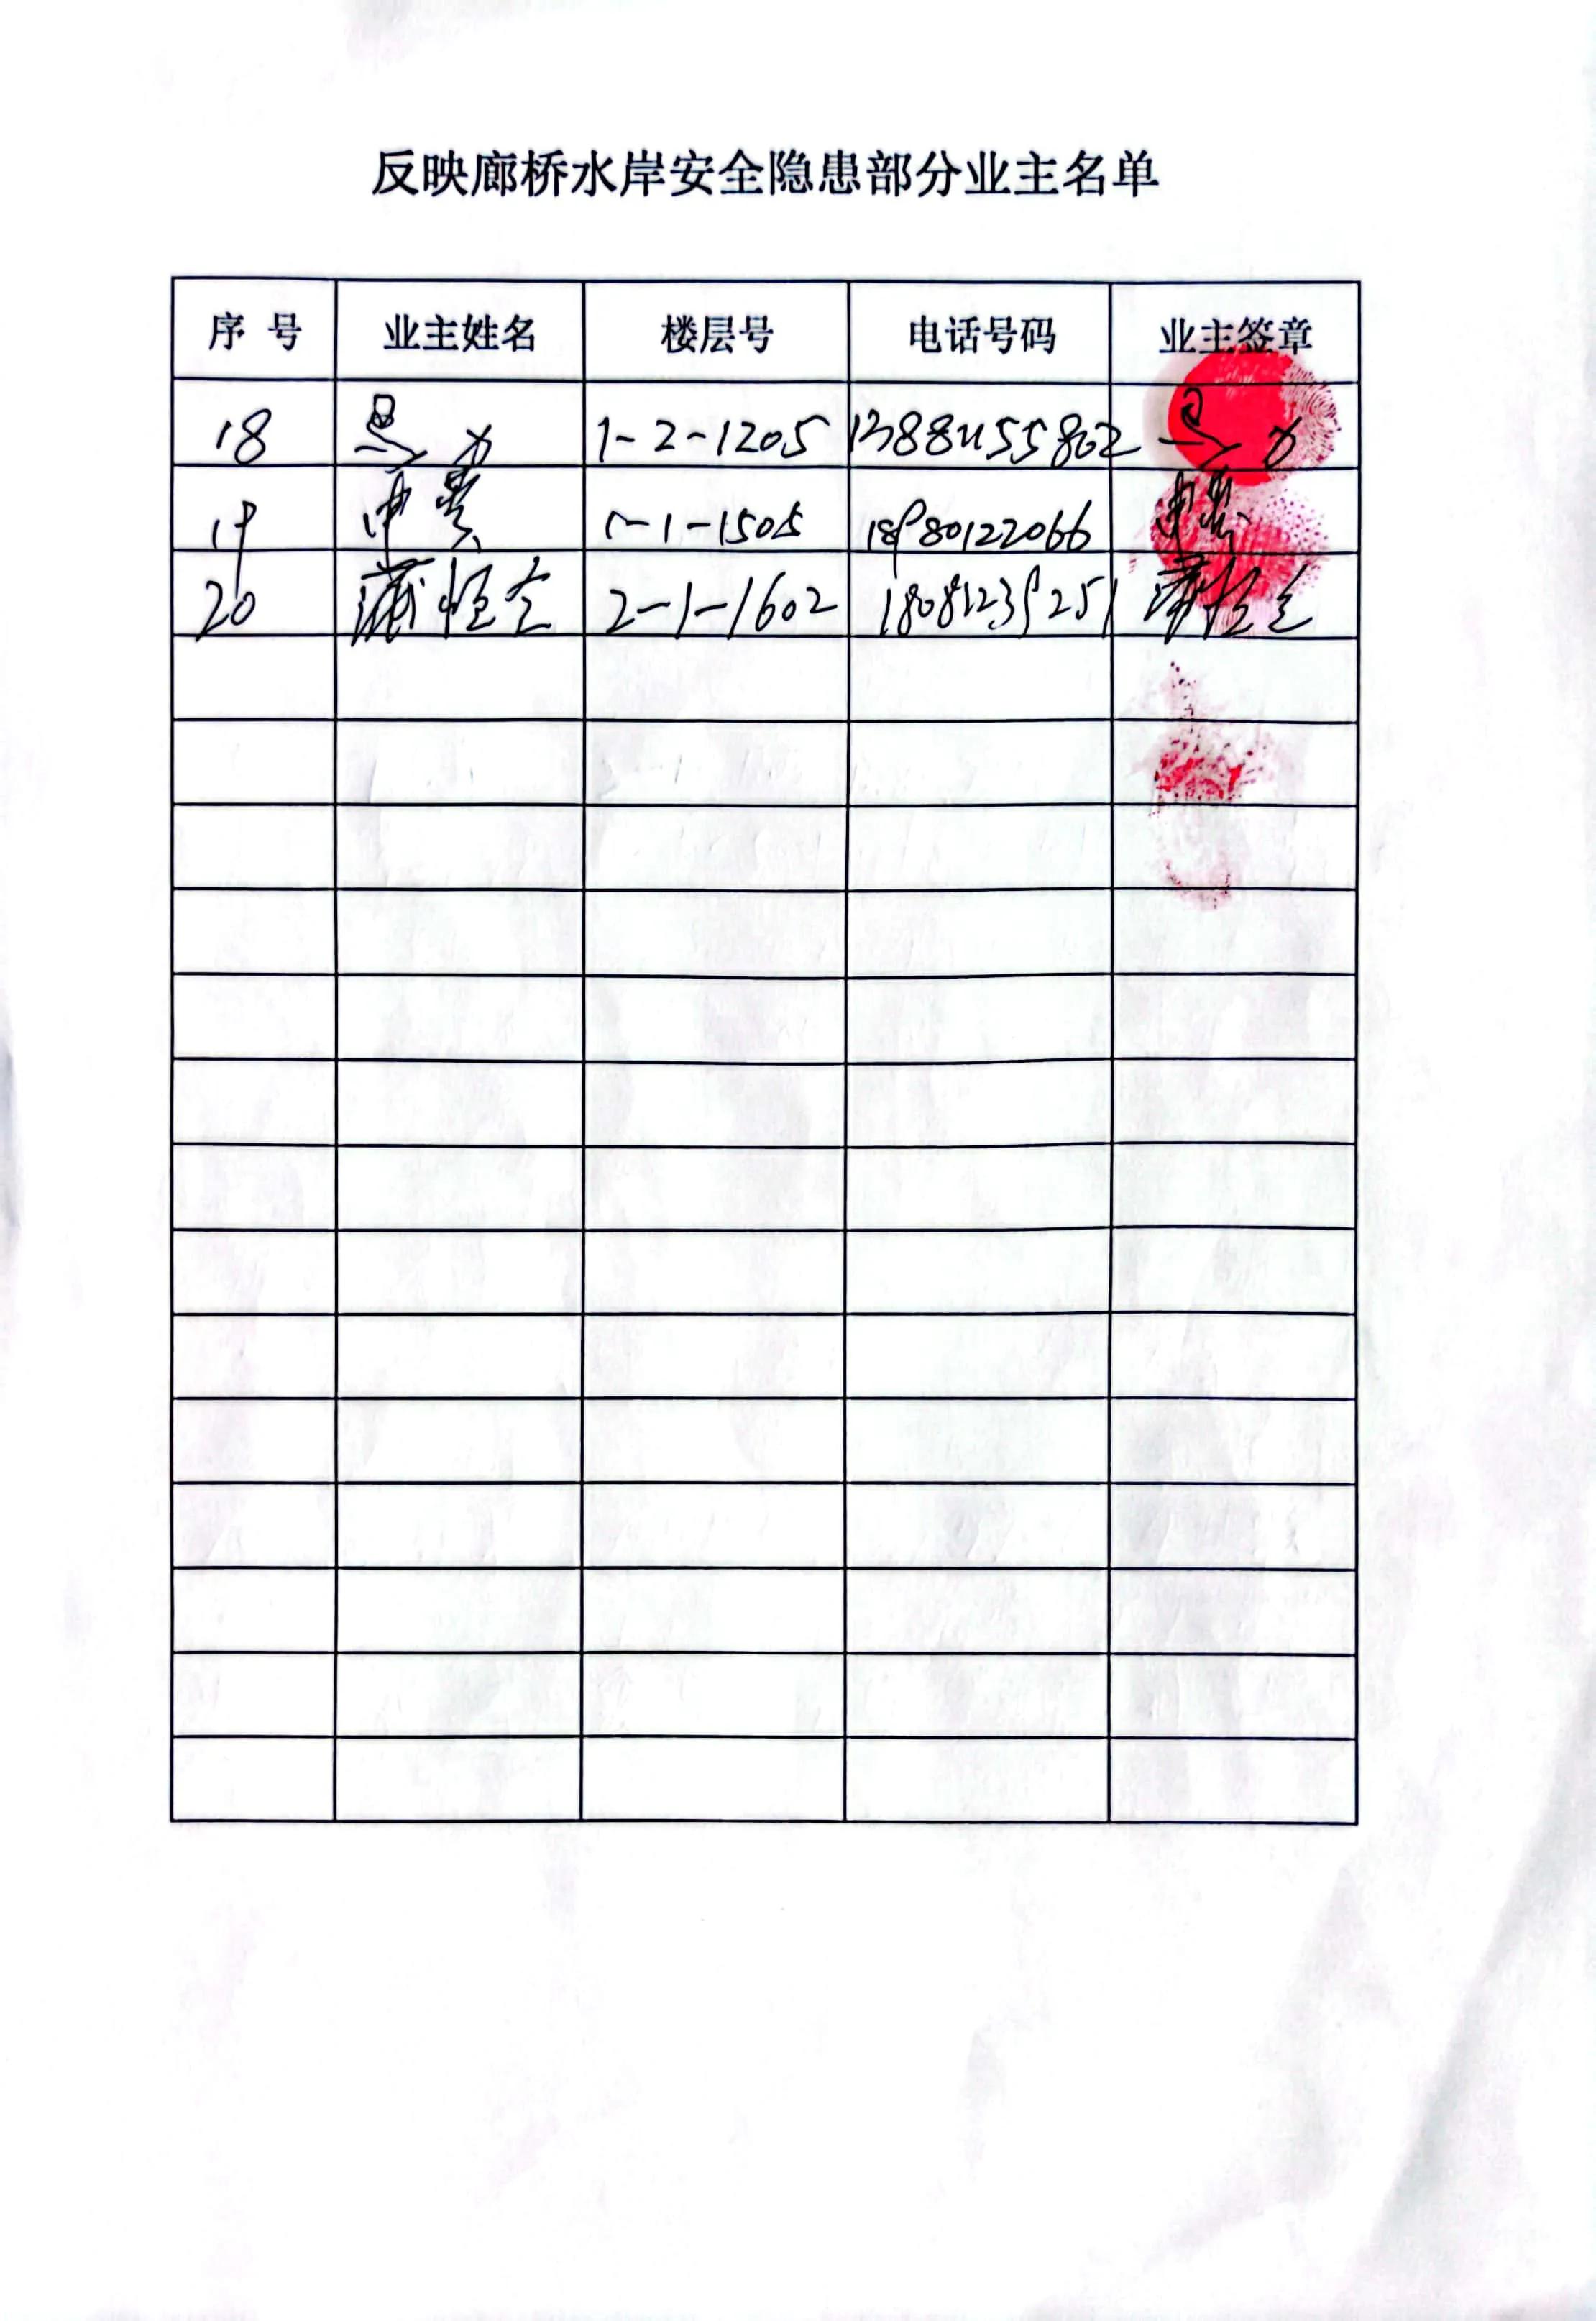 反映廊桥水岸安全隐患部分业主名单
序号 业主姓名 楼层号 电话号码 业主签章
18 1-2-1205
19 申贵 1-1-1505 18980122066 申贵
20 恒全 2-1-1602 18081239251 恒全